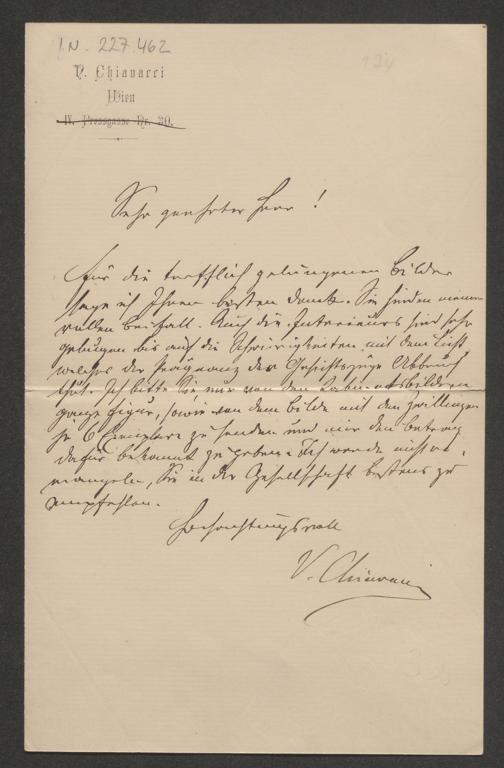 I.N. 227.462
V. Chiavacci
Wien
IV. Pressgasse Nr. 30.
Sehr geehrter Herr!
Für die trefflich gelungenen Bilder
sage ich Ihnen besten Dank. Sie finden meinen
vollen Beifall. Auch die Interieurs sind sehr
gelungen bis auf die Schwierigkeiten mit dem Licht
welches der Prägnanz der Gesichtszüge Abbruch
thut. Ich bitte Sie nur von den Cabinetsbildern
ganze Figur, sowie von dem Bilde mit den Zwillingen
je 6 Exemplare zu senden und mir den Betrag
dafür bekannt zu geben. Ich werde nicht er-
mangeln, Sie in der Gesellschaft bestens zu
empfehlen.
Hochachtungsvoll
V. Chiavacci